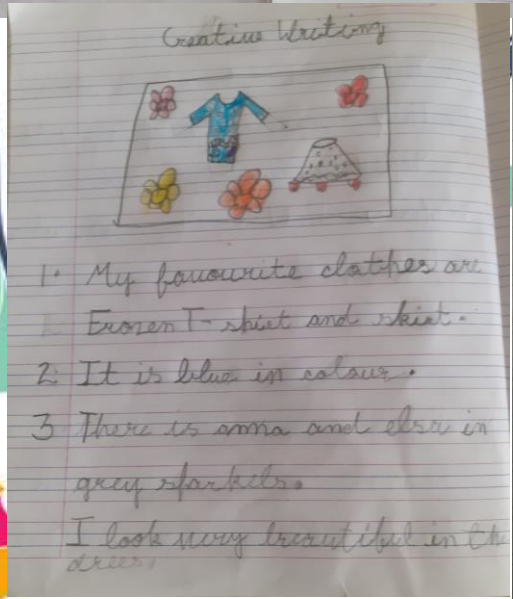 Creative Writing
1. My favourite clothes are
Frozen T-shirt and skirt.
2. It is blue in colour.
3 There is anna and elsa in
grey sparkels.
I look very beautiful in the
dress.